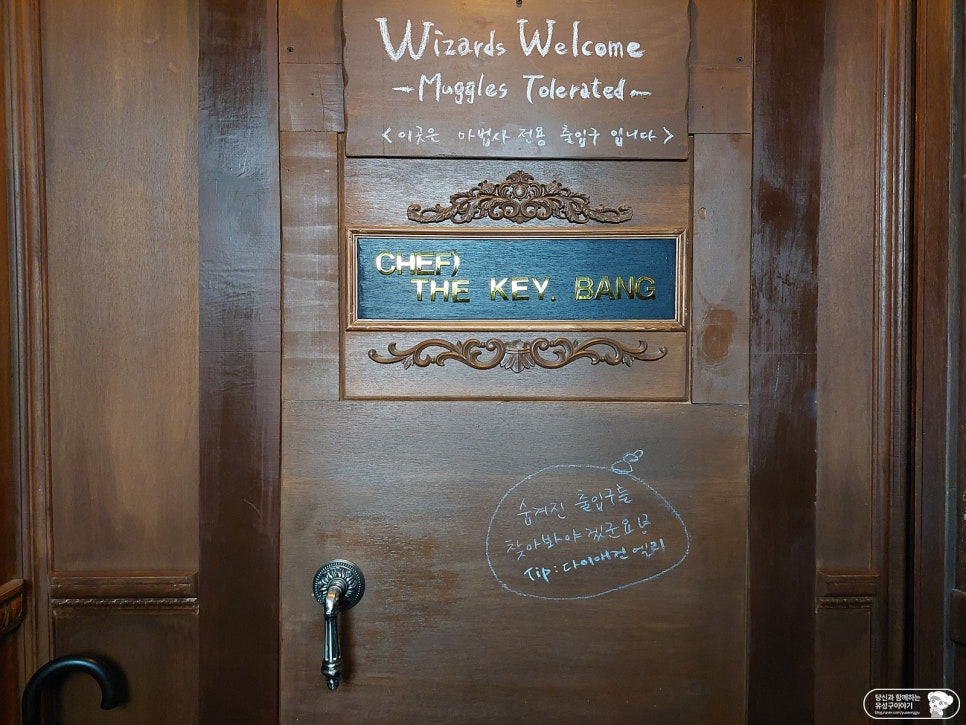 Wizards Welcome
-Muggles Tolerated-
<이곳은 마법사 전용 출입구 입니다>
CHEF)
THE KEY. BANG
숨겨진 출입구를
찾아봐야겠군요
Tip:다이애건 앨리
당신과 함께하는
유성구이야기
blog.naver.com/yuseonggu